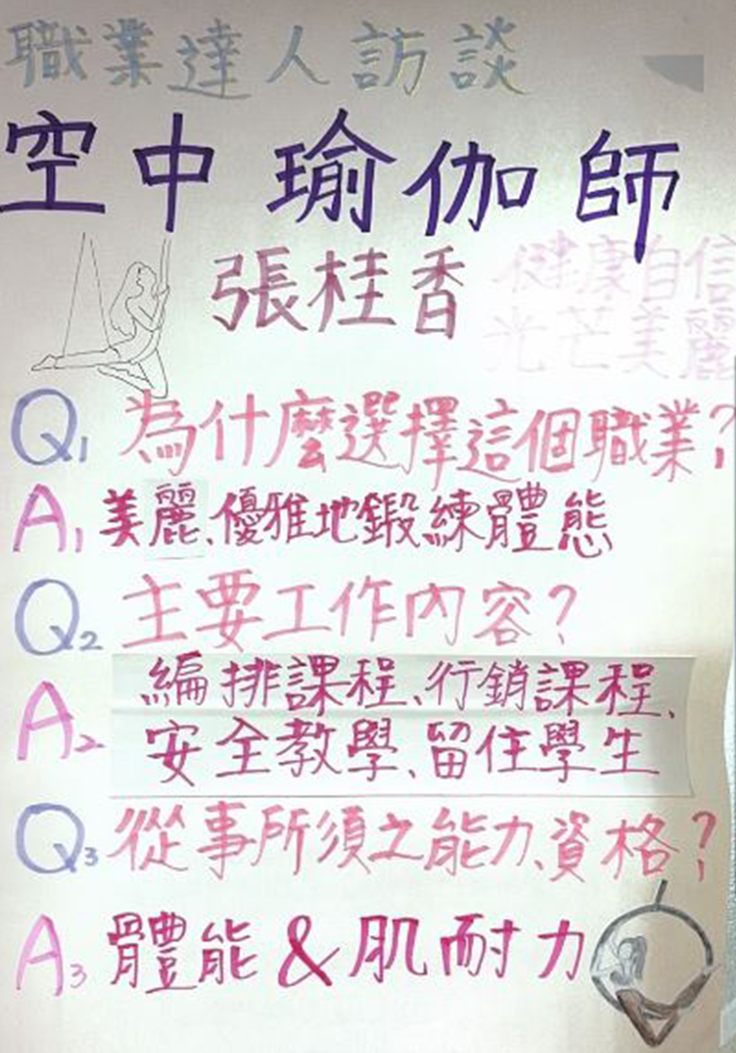 職業達人訪談
空中瑜伽師
張桂香
健康自信
光芒美麗
Q1 為什麼選擇這個職業?
A1 美麗、優雅地鍛練體態
Q2 主要工作內容?
A2 編排課程、行銷課程、
安全教學、留住學生
Q3 從事所須之能力、資格?
A3 體能&肌耐力